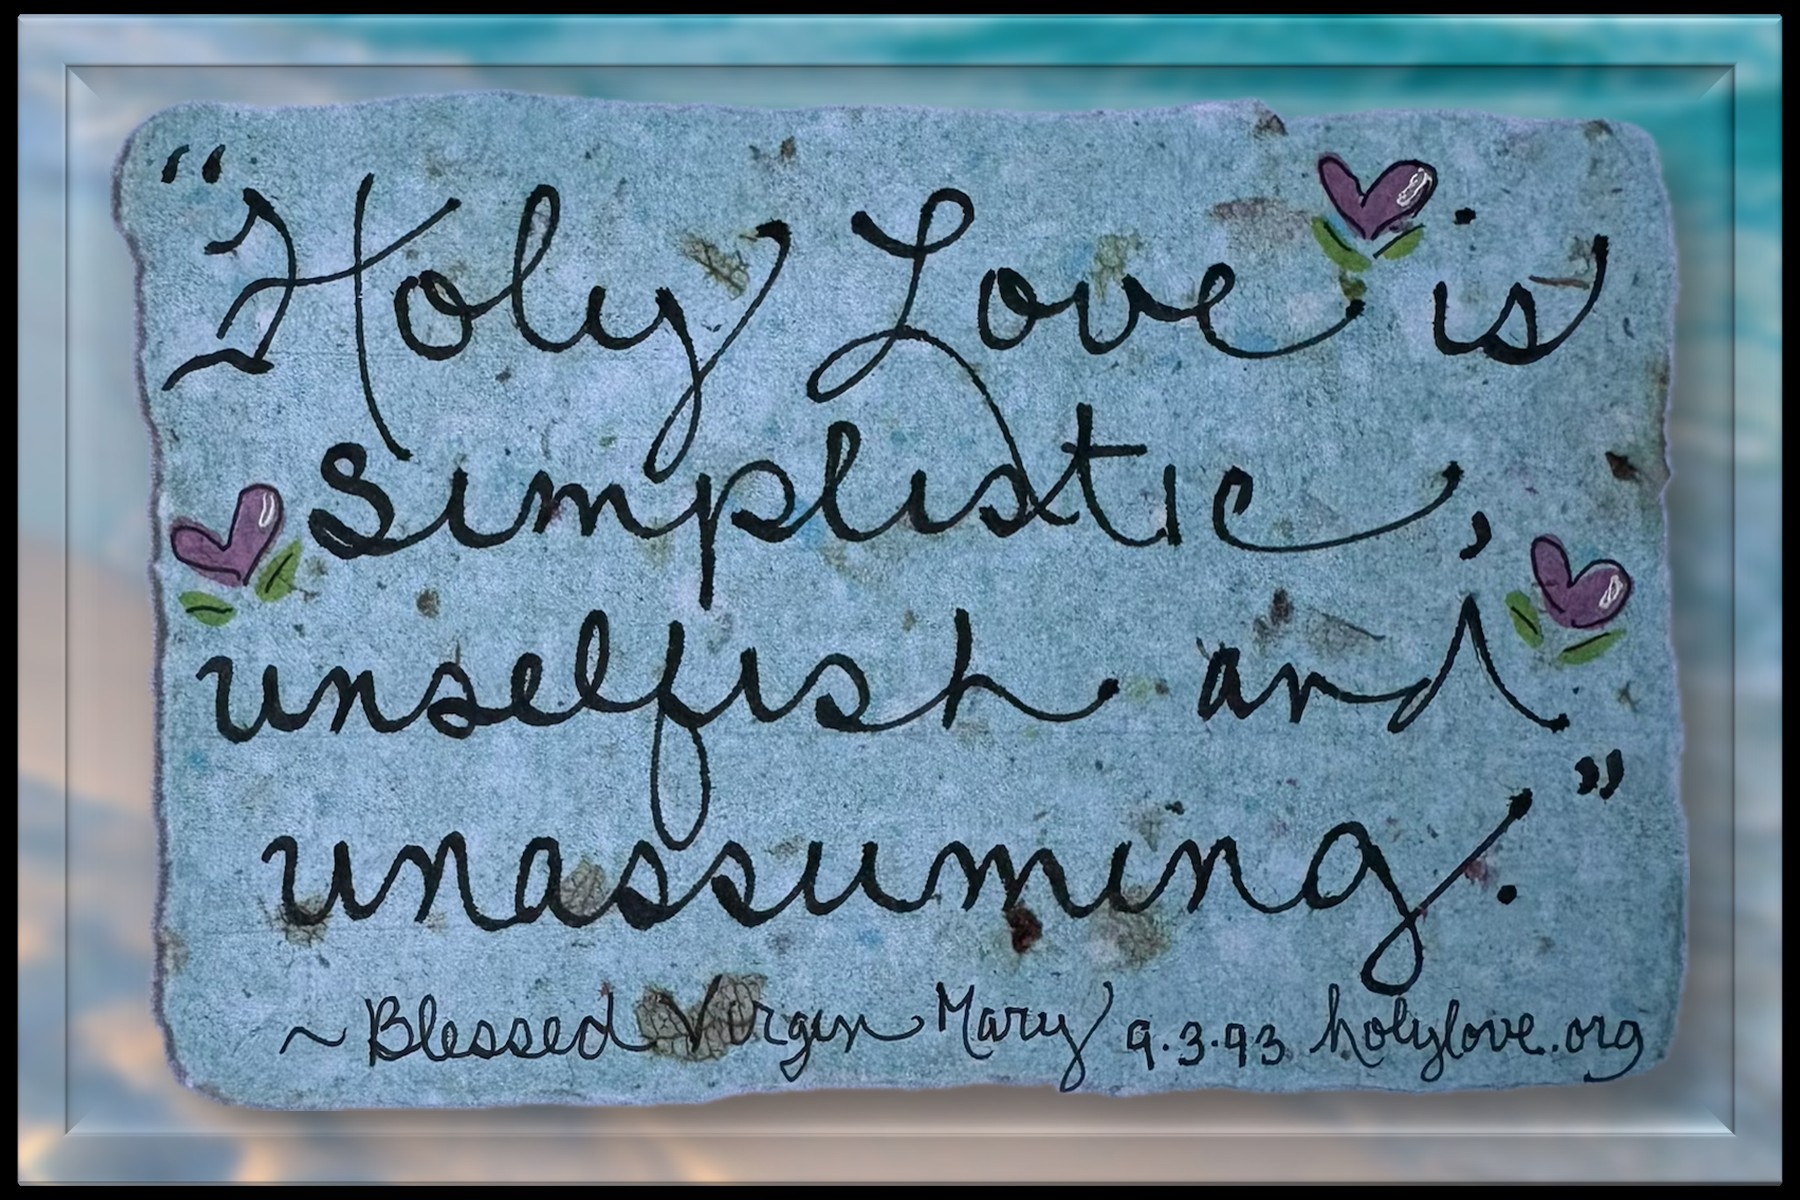 “Holy Love is
simplistic,
unselfish and
unassuming.”
~ Blessed Virgin Mary 9.3.93 holylove.org